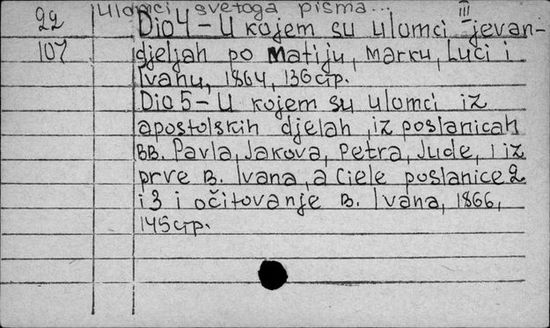 Ulomci svetoga pisma... III
22 Dio 4 - U kojem su ulomci jevan-
107 djeljah po Matiju, Marku, Luci i
Ivanu, 1864, 136 стр.
Dio 5 - U kojem su ulomci iz
apostolskih djelah, iz poslanicah
BB. Pavla, Jakova, Petra, Jude, i iz
prve B. Ivana, a ciele poslanice 2
i 3 i očitovanje B. Ivana, 1866,
145 стр.